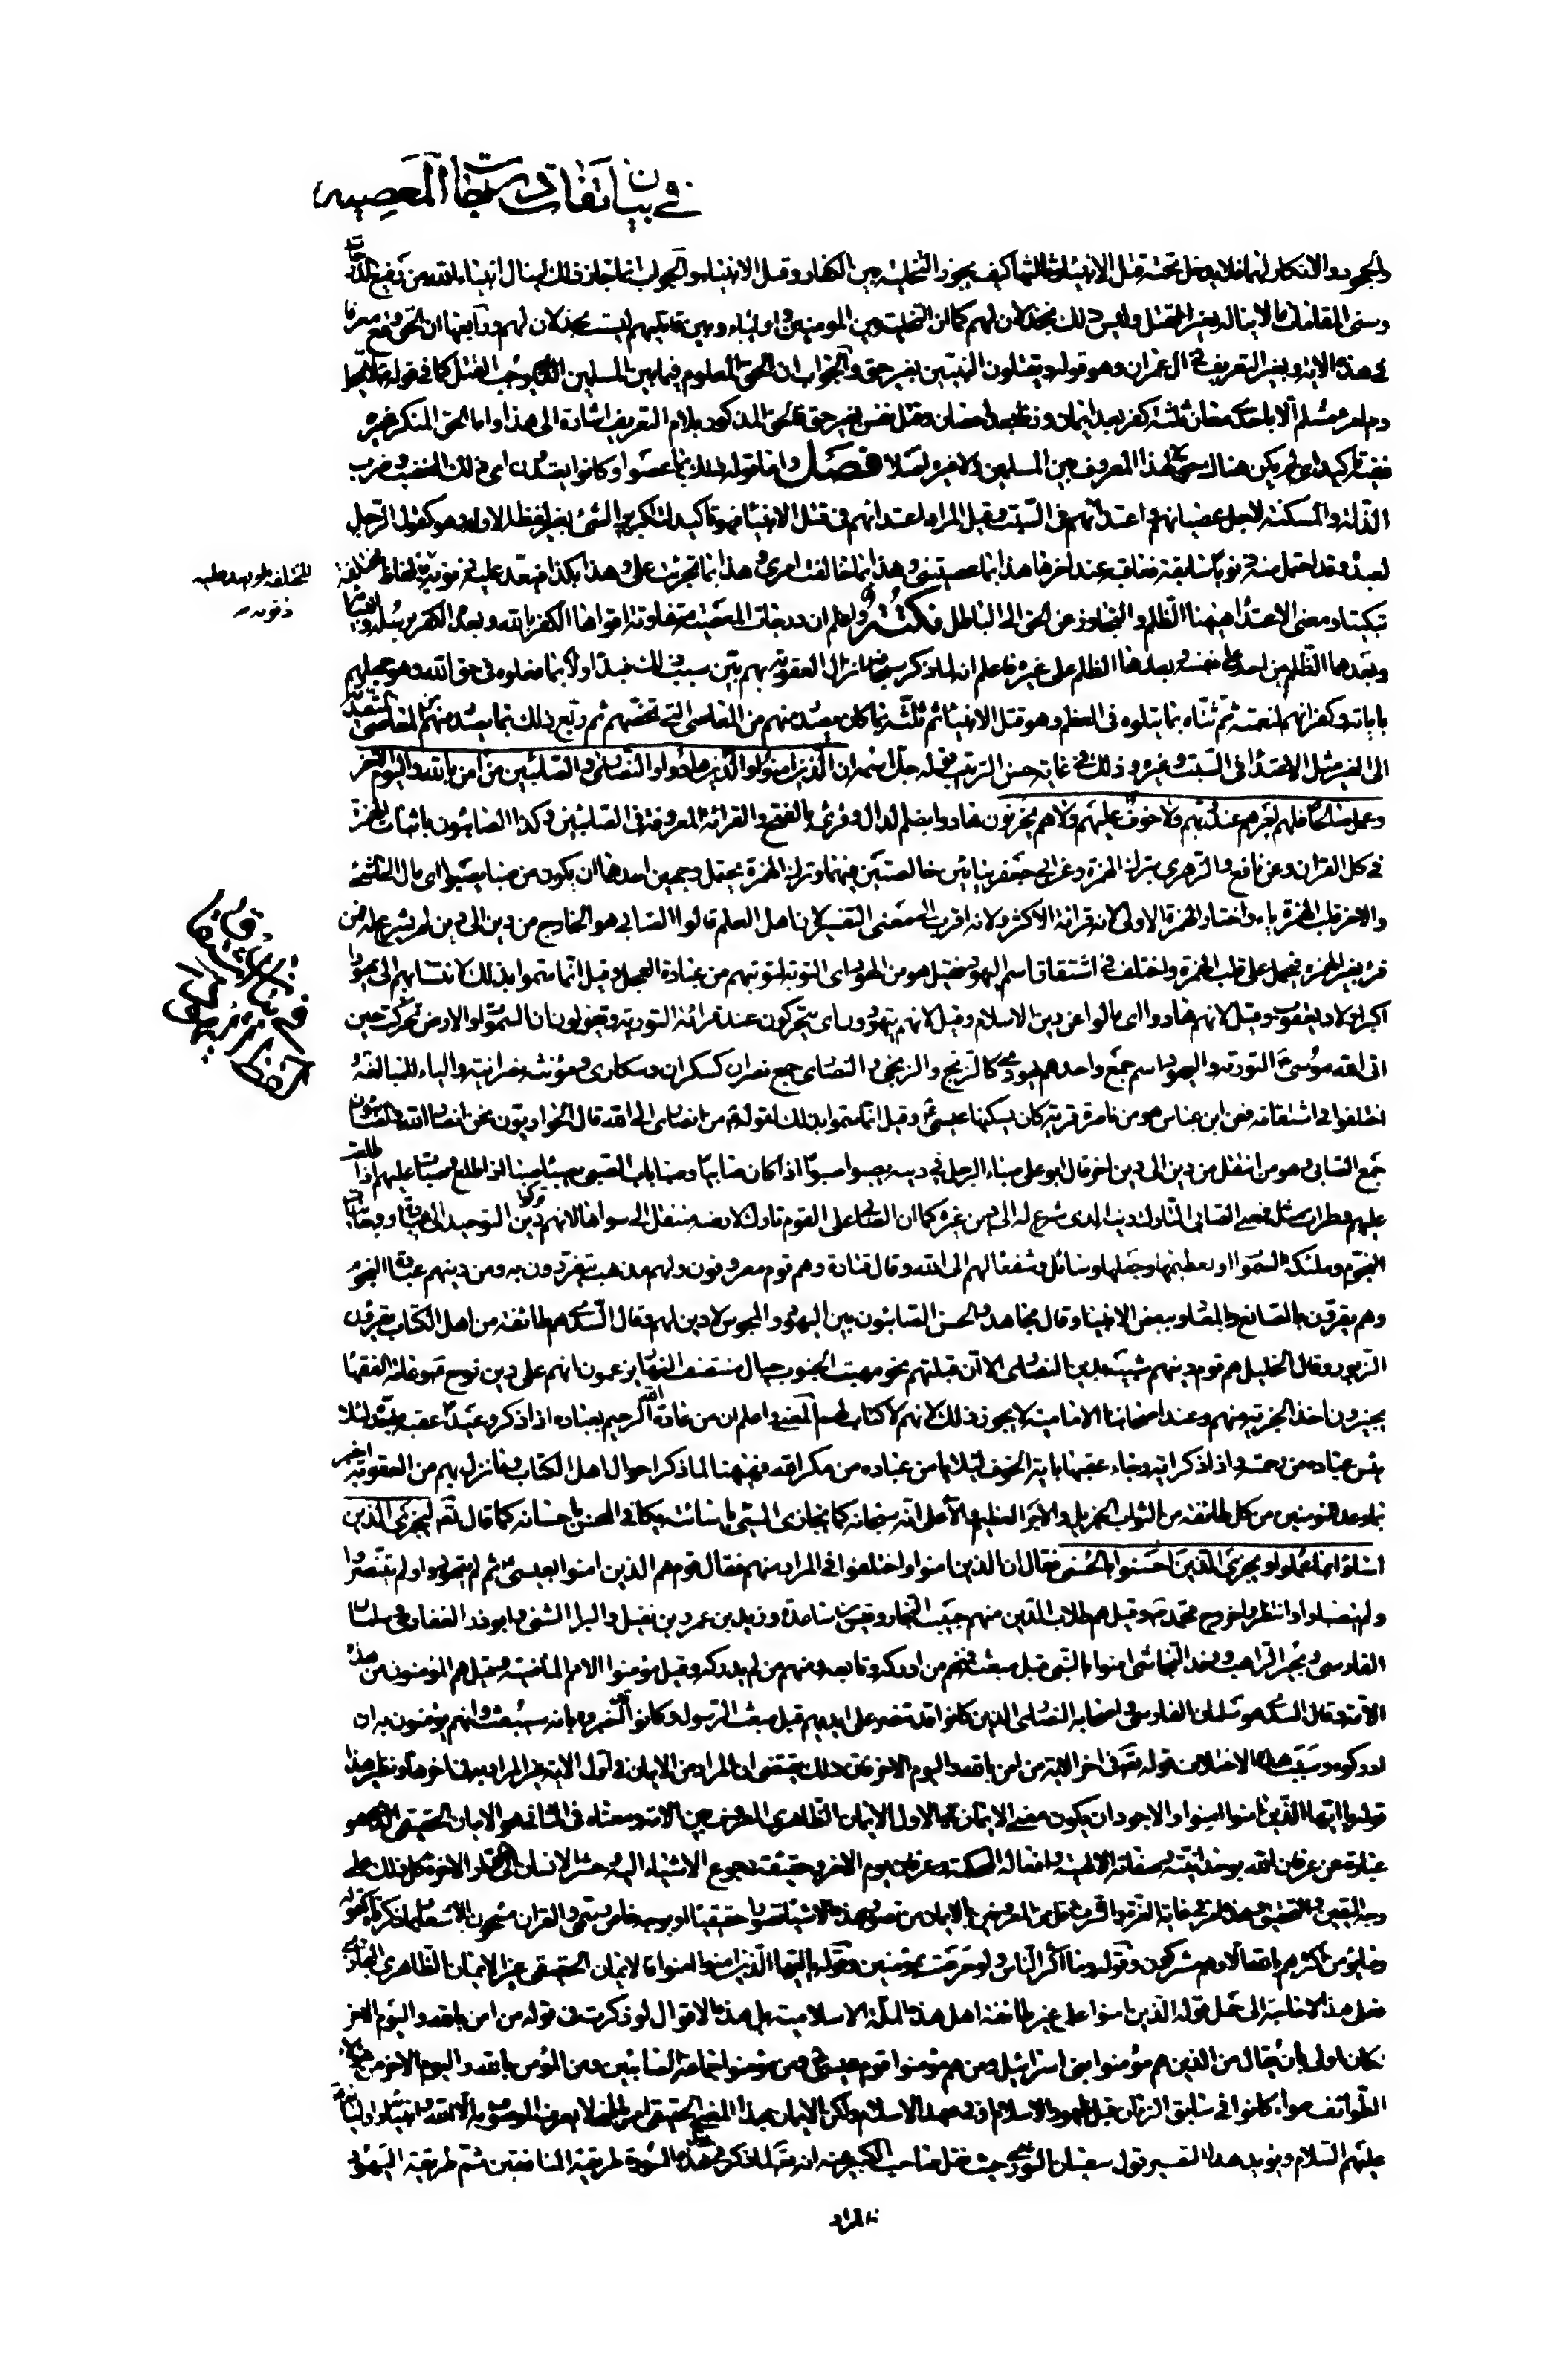 في بيان تفاوت درجات المعصية
والجحود والانكار لها فلا يدخل تحته قتل الانبياء وثالثها كيف يجوز التخلية بين الكفار وقتل الانبياء والجواب انما جاز ذلك لينال انبياء الله من رفيع الدرجات
وسنى المقامات ما لا ينال بغير القتل وليس ذلك بخذلان لهم كما ان التخلية بين المومنين واولياء وبين قاتليهم ليست بخذلان لهم ورابعها ان الحق وقع معرفا
في هذه الاية وبغير التعريف في ال عمران وهو قوله ويقتلون النبيين بغير حق والجواب ان الحق المعلوم فيما بين المسلمين الذي يوجب القتل كما في قوله لا يحل
دم امرء مسلم الا باحدى معان ثلثة كفر بعد ايمان وزنا بعد احصان وقتل نفس بغير حق فالحق المذكور بلام التعريف اشارة الى هذا واما الحق المنكر
ففيه تاكيد اى لم يكن هناك حق لا هذا المعروف بين المسلمين ولا غيره اصلا فصل واما قوله ذلك بما عصوا وكانوا يعتدون اى ذلك الغضب وضرب
الذلة والمسكنة لاجل عصيانهم واعتدائهم في السبت وقيل المراد اعتدائهم في قتل الانبياء فهو تاكيد لتكرير الشئ بغير لفظ الاول وهو كقول الرجل
لعبده وقد احتمل منه ذنوبا سابقة فعاقبه عند اخرها هذا بما عصيتنى وهذا بما خالفت امرى هذا بما تجرئت على وهذا بكذا فيعد عليه ذنوبه بالفاظ مختلفة
تبكيتا ومعنى الاعتداء هيهنا الظلم والتجاوز عن الحق الى الباطل نكتة واعلم ان درجات المعصية متفاوتة اقواها الكفر بالله وبعده الكفر برسله وانبيائه
وبعدها الظلم من احد على نفسه وبعدها الظلم على غيره فاعلم انه لما ذكر سبحانه انزال العقوبة بهم بين سبب ذلك فبدأ اولا بما فعلوه في حق الله وهو جهلهم
باياته وكفرانهم لنعمته ثم ثناه بما يتلوه في العظم وهو قتل الانبياء ثم ثلثه بما كان يصدر منهم من المعاصى التى تخصهم ثم ربع ذلك بما يصدر منهم من المعاصى المتعدية
الى الغير مثل الاعتداء في السبت وغيره وذلك في غاية حسن الترتيب قوله جل اسمه ان الذين امنوا والذين هادوا والنصارى والصابئين من امن بالله واليوم الاخر
وعمل صالحا فلهم اجرهم عند ربهم ولا خوف عليهم ولا هم يحزنون هادوا بضم الدال وقرئ بالفتح والقرائة المعروفة في الصابئين وكذا الصابئون باثبات الهمزة
في كل القران وعن نافع والزهرى بترك الهمزة وعن ابى جعفر بيائين خالصتين فيهما وترك الهمزة يحتمل وجهين احدهما ان يكون من صبا يصبوا اى مال الى الشئ
والاخر قلب الهمزة ياء واختار الهمزة الاولى لانه قرائة الاكثر ولانه اقرب الى معنى التفسير لان اهل العلم قالوا الصابى هو الخارج من دين الى دين لم يشرع له فمن
قرء بغير الهمزة فيحمل على قلب الهمزة واختلف في اشتقاق اسم اليهود فقيل هو من الهود اى التوبة لتوبتهم من عبادة العجل وقيل انما سموا بذلك لانتسابهم الى يهودا
اكبر اولاد يعقوب وقيل لانهم هادوا اى مالوا عن دين الاسلام وقيل لانهم يتهودون اى يتحركون عند قرائة التورية ويقولون ان السموات والارض تحركت حين
اتى الله موسى التورية واليهود اسم جمع واحدهم يهودى كالزنج والزنجى والنصارى جمع نصران كسكران وسكارى ومؤنثه نصرانية والياء للمبالغة
اختلفوا في اشتقاقه فعن ابن عباس هو من ناصرة قرية كان يسكنها عيسى وقيل انما سموا بذلك لقوله من انصارى الى الله قال الحواريون نحن انصار الله والصابئون
جمع الصابى وهو من انتقل من دين الى دين اخر قال ابو على صباء الرجل في دينه يصبوا صبوا اذا كان صابيا وصبا ناب الصبى يصبا صبأ اذا طلع وصبات عليهم اذا طلعت
عليهم وطرأت مثله فمعنى الصابى التارك دينه الذى شرع له الى دين غيره كما ان الصابى على القوم تارك لارضه منتقل الى سواها لانهم تركوا دين التوحيد الى عبادة
النجوم وملئكة السموات او تعظيمها وجعلها وسائل وشفعاء لهم الى الله وقال قتادة وهم قوم معروفون ولهم مذهب يتفردون به ومن دينهم عبادة النجوم
وهم يقرون بالصانع والمعاد وببعض الانبياء وقال مجاهد والحسن الصابئون بين اليهود والمجوس لا دين لهم وقال السدى هم طائفة من اهل الكتاب يقرؤن
الزبور وقال الخليل هم قوم دينهم شبيه بدين النصارى الا ان قبلتهم نحو مهب الجنوب حيال منتصف النهار يزعمون انهم على دين نوح وعامة الفقهاء
يجيزون اخذ الجزية منهم وعند اصحابنا الامامية لا يجوز ذلك لانهم لا كتاب لهم المعنى واعلم ان من عادة الله الكريم بعباده اذا ذكر وعيدا عقبه بوعد لئلا
يئس عباده من رحمته واذا ذكر اية رجاء عقبها باية الخوف لئلا يأمن عباده من مكر الله فههنا لما ذكر احوال اهل الكتاب وما نزل بهم من العقوبة اخبر
بما وعد المؤمنين من كل طائفة من الثواب الجزيل والاجر العظيم دالا على انه سبحانه كما يجازى المسئ باسائته يكافى المحسن باحسانه كما قال تعالى ليجزى الذين
اساؤا بما عملوا ويجزى الذين احسنوا بالحسنى فقال ان الذين امنوا واختلفوا في المراد منهم فقال قوم هم الذين امنوا بعيسى ثم لم يتهودوا ولم يتنصروا
ولم يصباوا وانتظروا خروج محمد وقيل هم طلاب الدين منهم حبيب النجار وقس بن ساعدة وزيد بن عمرو بن نفيل والبرا الشنى وابو ذر الغفارى وسلمان
الفارسى وبحيرا الراهب ووفد النجاشى امنوا بالنبى قبل مبعثه فمنهم من ادركه وتابعه ومنهم من لم يدركه وقيل مؤمنوا الامم الماضية وقيل هم المؤمنون من هذه
الامة وقال السدى هو سلمان الفارسى واصحابه النصارى الذين كانوا قد تنصر على ايديهم قبل مبعث الرسول وكانوا اخبروه بانه سيبعث وانهم يؤمنون به ان
ادركوه وسبب هذا الاختلاف قوله تعالى في اخر الاية من امن بالله واليوم الاخر فان ذلك يقتضى ان المراد من الايمان في اول الاية غير المراد به في اخرها ونظير هذا
قوله يا ايها الذين امنوا امنوا والاجود ان يكون معنى الايمان في الاول الايمان الظاهرى المعروف بين الامة ومعناه في الثانى هو الايمان الحقيقى الذى هو
عبارة عن عرفان الله بوحدانيته وصفاته الالهية وافعاله المحكمة وعرفان يوم الاخر وحقيقة رجوع الاشياء اليه وحشر الانسان الى دار الاخرة كل ذلك على
وجه اليقين والتحقيق
وما يؤمن اكثرهم بالله الا وهم مشركون وقوله وما اكثر الناس ولو حرصت بمؤمنين وقوله يا ايها الذين امنوا امنوا فالايمان الحقيقى غير الايمان الظاهرى
فعلى هذا لا حاجة الى حمل قوله الذين امنوا على غير طائفة اهل هذه الملة الاسلامية بل هذه الاقوال لو ذكرت في قوله من امن بالله واليوم الاخر
لكان اولى بان يقال من الذين هم مؤمنوا بنى اسرائيل ومن هم مؤمنوا قوم عيسى ومن مؤمنوا جماعة الصابئين ومن المؤمن بالله واليوم الاخر من هؤلاء
الطوائف سواء كانوا في سابق الزمان قبل ظهور الاسلام او في عهد الاسلام ولكن الايمان بهذا المعنى الحقيقى امر باطنى لا يعرف الموصوف به الا الله وانبيائه واوليائه
عليهم السلام ويؤيد هذا التفسير قول سفيان الثورى حيث نقل صاحب الكبير عنه انه تعالى لما ذكر في هذه السورة طريقة المنافقين ثم طريقة اليهود
فالمراد